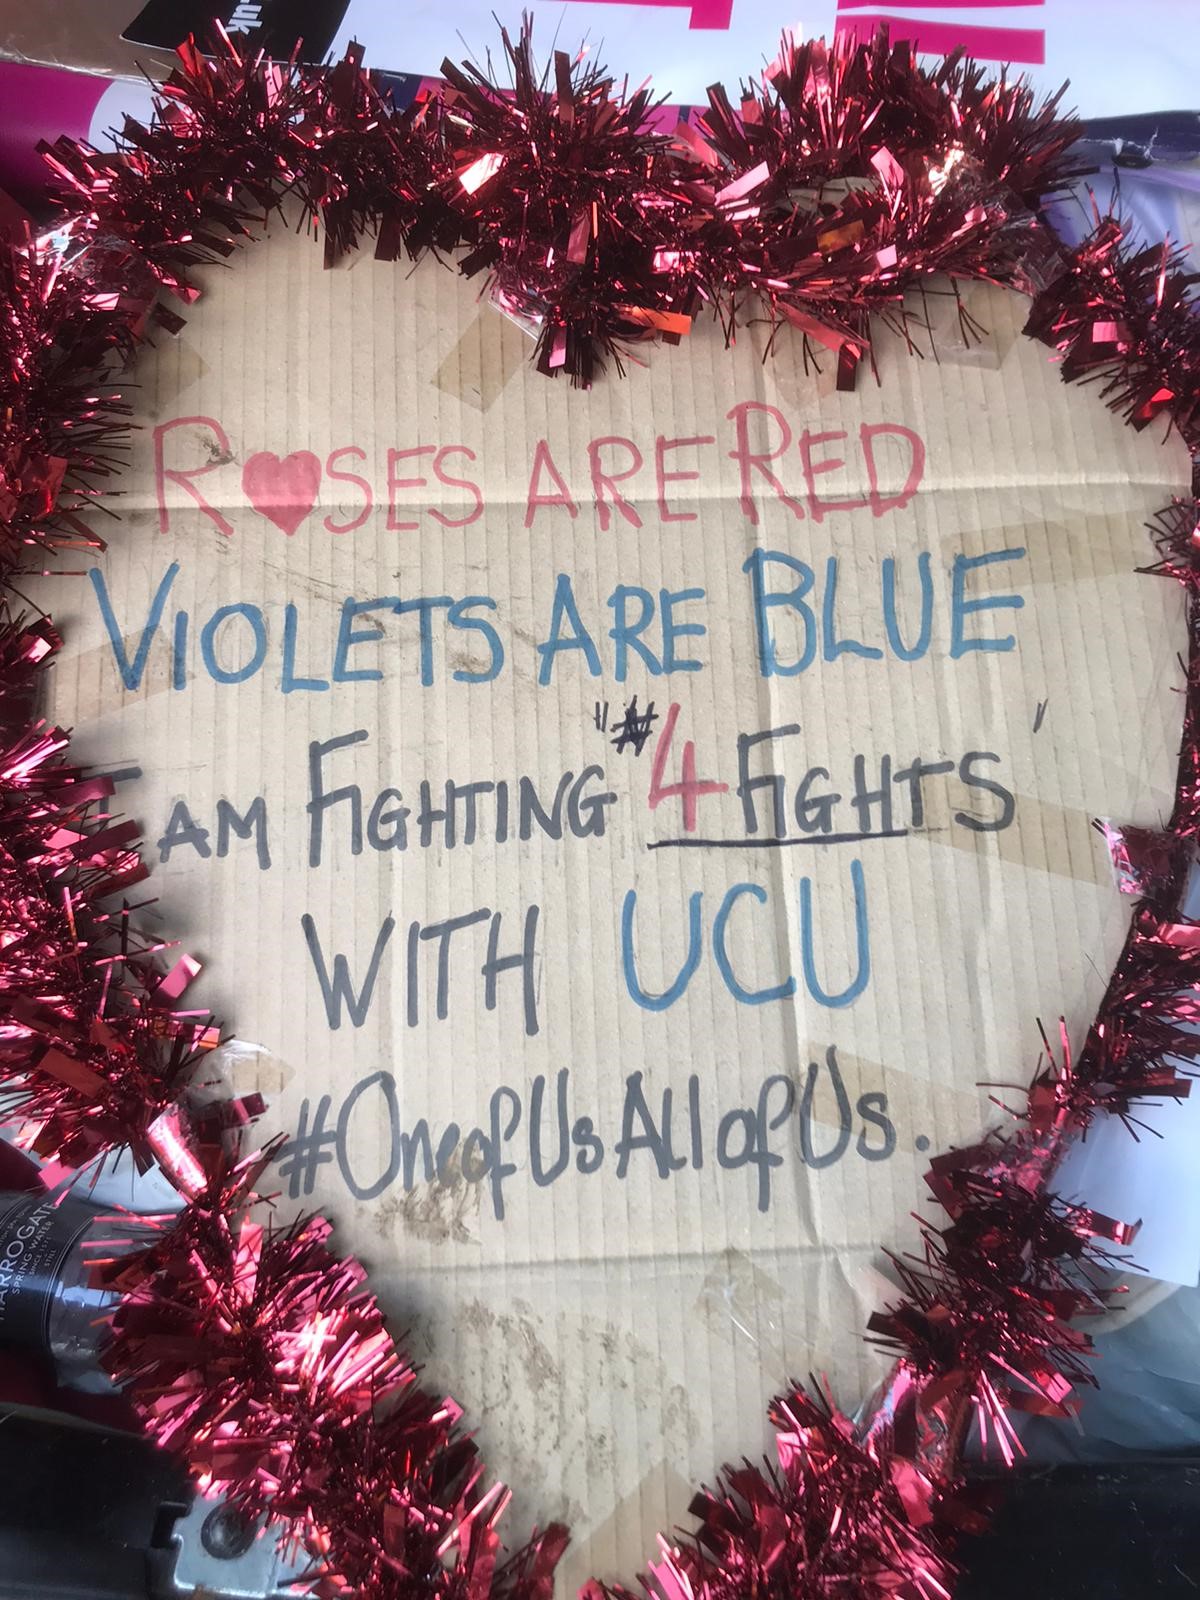 .uk
ROSES ARE RED
VIOLETS ARE BLUE
I AM FIGHTING "#4 FIGHTS"
WITH UCU
#OneofUsAllofUs.
HARROGATE
SPRING WATER
SINCE 1571
STILL